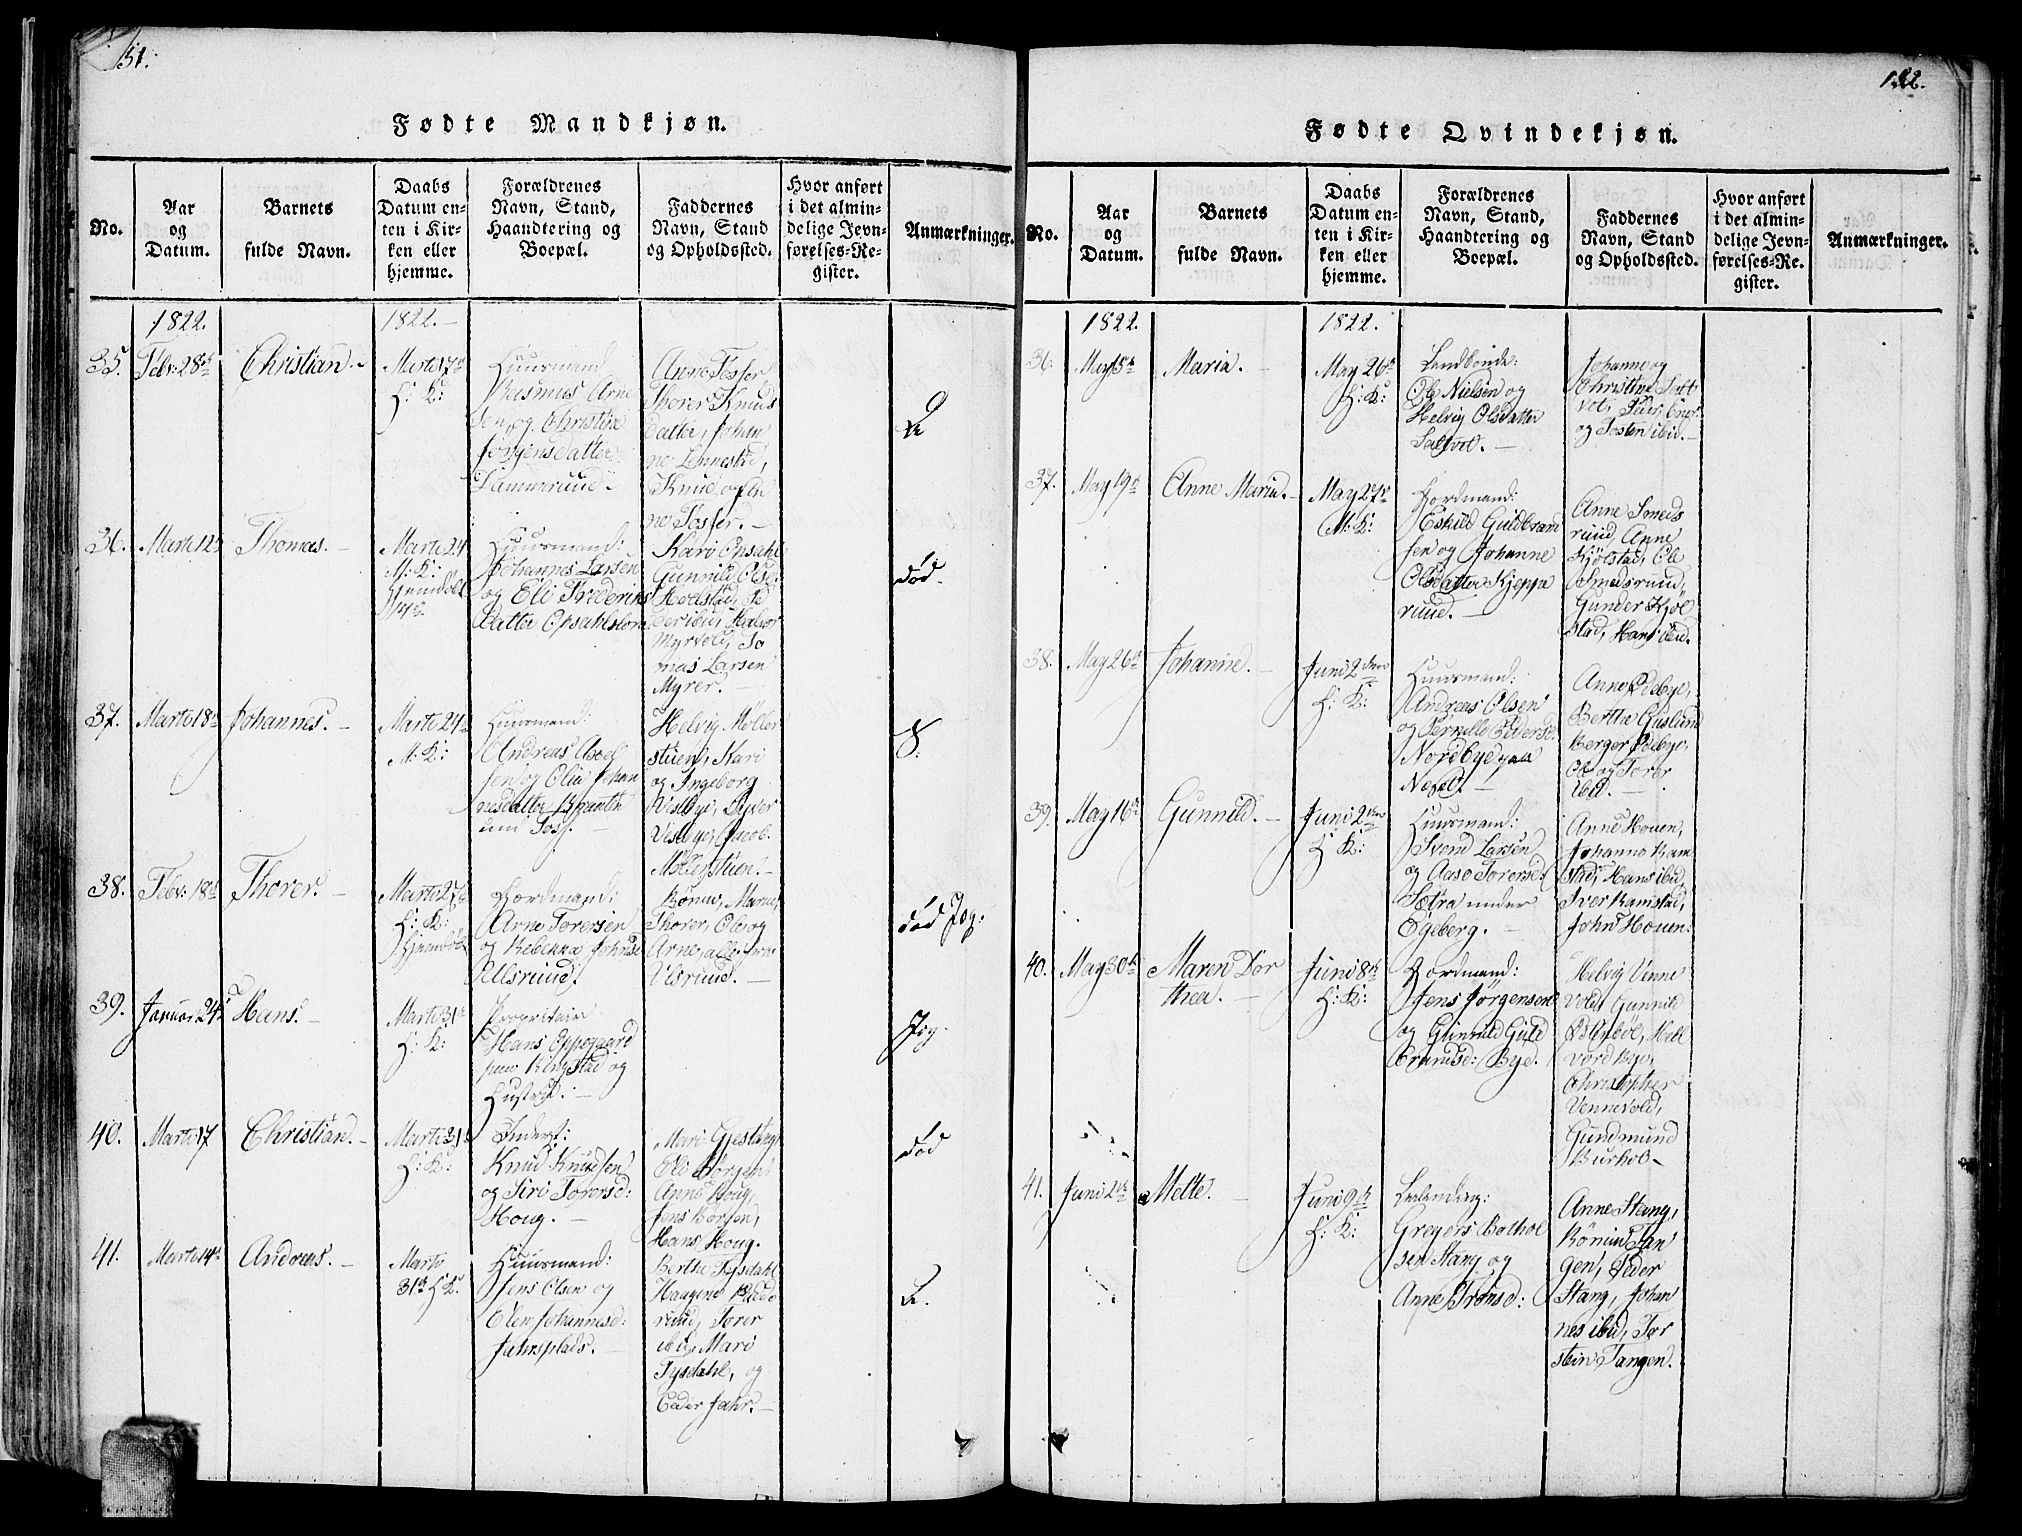 131.
Fødte Mandkjøn.
No.
Aar
og
Datum.
Barnets
fulde Navn.
Daabs
Datum en-
ten i Kir-
ken eller
hjemme.
Forældrenes
Navn, Stand,
Haandtering og
Boepæl.
Faddernes
Navn, Stand
og Opholdssted.
Hvor anført
i det almin-
delige Jevn-
førelses-Re-
gister.
Anmærkninger.
1822.
1822.
35.
Febr: 28de
Christian.
Marts 17de
H: K:
Huusmand
Rasmus Arne
sen, og Christine
Jørgensdatter
Anne Fosser
Thorer Knuds
datter, Johan
ne Lennestad,
Knud, og En
ne Fosser.
36.
Marts 12te
Thomas.
Marts 24
M: K:
Hjemdøbt
14de
Huusmand:
Johannes Larsen
og Eli Frederiks
datter Opsahlstorp
Kari Opsahl
Gunnild Olsd:
Holstad, Fr
derich, Halvor
Myrvold, To
mas Larsen
Myrer.
død.
37.
Marts 18de
Johannes.
Marts 24de
M: K:
Huusmand:
Andreas Axel
sen og Olia Johan
nesdatter Braath
um Foss.
Helvig Møller
stuen, Kari
og Ingeborg
Visbye, Syver
Visbye, Jacob
Møllerstuen.
S.
38.
Febr: 18de
Thorer.
Marts 27de
H: K:
Hjemdøbt
Gordmand:
Arne Torersen
og Rebekka Johnsd
Ullsruud.
Rønnu, Marne,
Thorer, Ole og
Arne, alle fra
Ulsruud.
død Jog:
39.
Januar 24de
Hans.
Marts 31te
H: K:
Proprietair
Hans Oppegaard
paa Ringstad og
Hustrue:
Jog.
40.
Marts 17
Christian.
Marts 31te
H: K:
Inderst:
Knud Knudsen
og Siri Torersd:
Houg.
Mari Gjestang,
Eli Børgen
Anne Houg,
Jens Børgen,
Hans Houg.
død
41.
Marts 14de
Andreas.
Marts
31te H K.
Huusmand:
Jens Olsen og
Elen Johannesd:
Jahrsplads.
Berthe Tysdahl
ruud, Torer
ibid, Mari
Tysdahl, og
Peder Jahr.
132.
Fødte Qvindekjøn.
No.
Aar
og
Datum.
Barnets
fulde Navn.
Daabs
Datum en-
ten i Kir-
ken eller
hjemme.
Forældrenes
Navn, Stand,
Haandtering og
Boepæl.
Faddernes
Navn, Stand
og Opholdssted.
Hvor anført
i det almin-
delige Jevn-
førelses-Re-
gister.
Anmærkninger.
1822.
1822.
36.
May 5te
Maria.
May 26de
H: K:
Landbonde:
Ole Nielsen og
Helvig Olsdatter
Saltvet.
Johanne og
Christine Salt
vet, Peder, Engr.
og Tosten ibid.
37.
May 19de
Anne Maria.
May 27de
M: K:
Gordmand:
Eskild Guldbrand
sen og Johanne
Olsdatter Kjeppe
ruud.
Anne Smeds
ruud, Anne
Kjølstad, Ole
Smedsruud,
Gunder Kjøl
stad, Hans ibid.
38.
May 26de
Johanne.
Juni 2den
H: K:
Huusmand:
Andreas Olsen
og Pernille Pedersd:
Nordbye paa
Nesset.
Anne Rosbye,
Berthe Guslund
Berger Rosbye,
Ole og Torer
ibid.
39.
May 16de
Gunnild.
Juni 2den
H: K:
Huusmand:
Svend Larsen
og Aase Torersd:
Sætra under
Egeberg.
Anne Houen,
Johanne Ram
stad, Hans ibid
Iver Ramstad,
John Houen.
40.
May 30te
Maren Dor
thea.
Juni 8de
H: K:
Gordmand:
Jens Jørgensen
og Gunnild Guld
brandsd: Bye.
Helvig Venne
vold, Gunnild
vord Bye,
Christopher
Vennevold,
Gundmund
Burhol
41.
Juni 2den
Mette.
Juni 9de
H: K:
Leilending:
Greyers Bothol
sen Stang og
Anne Tronsd:
Anne Stang,
Rønnu Tan
gen, Peder
Stang, Johan
nes ibid, Tor
stein Tangen.